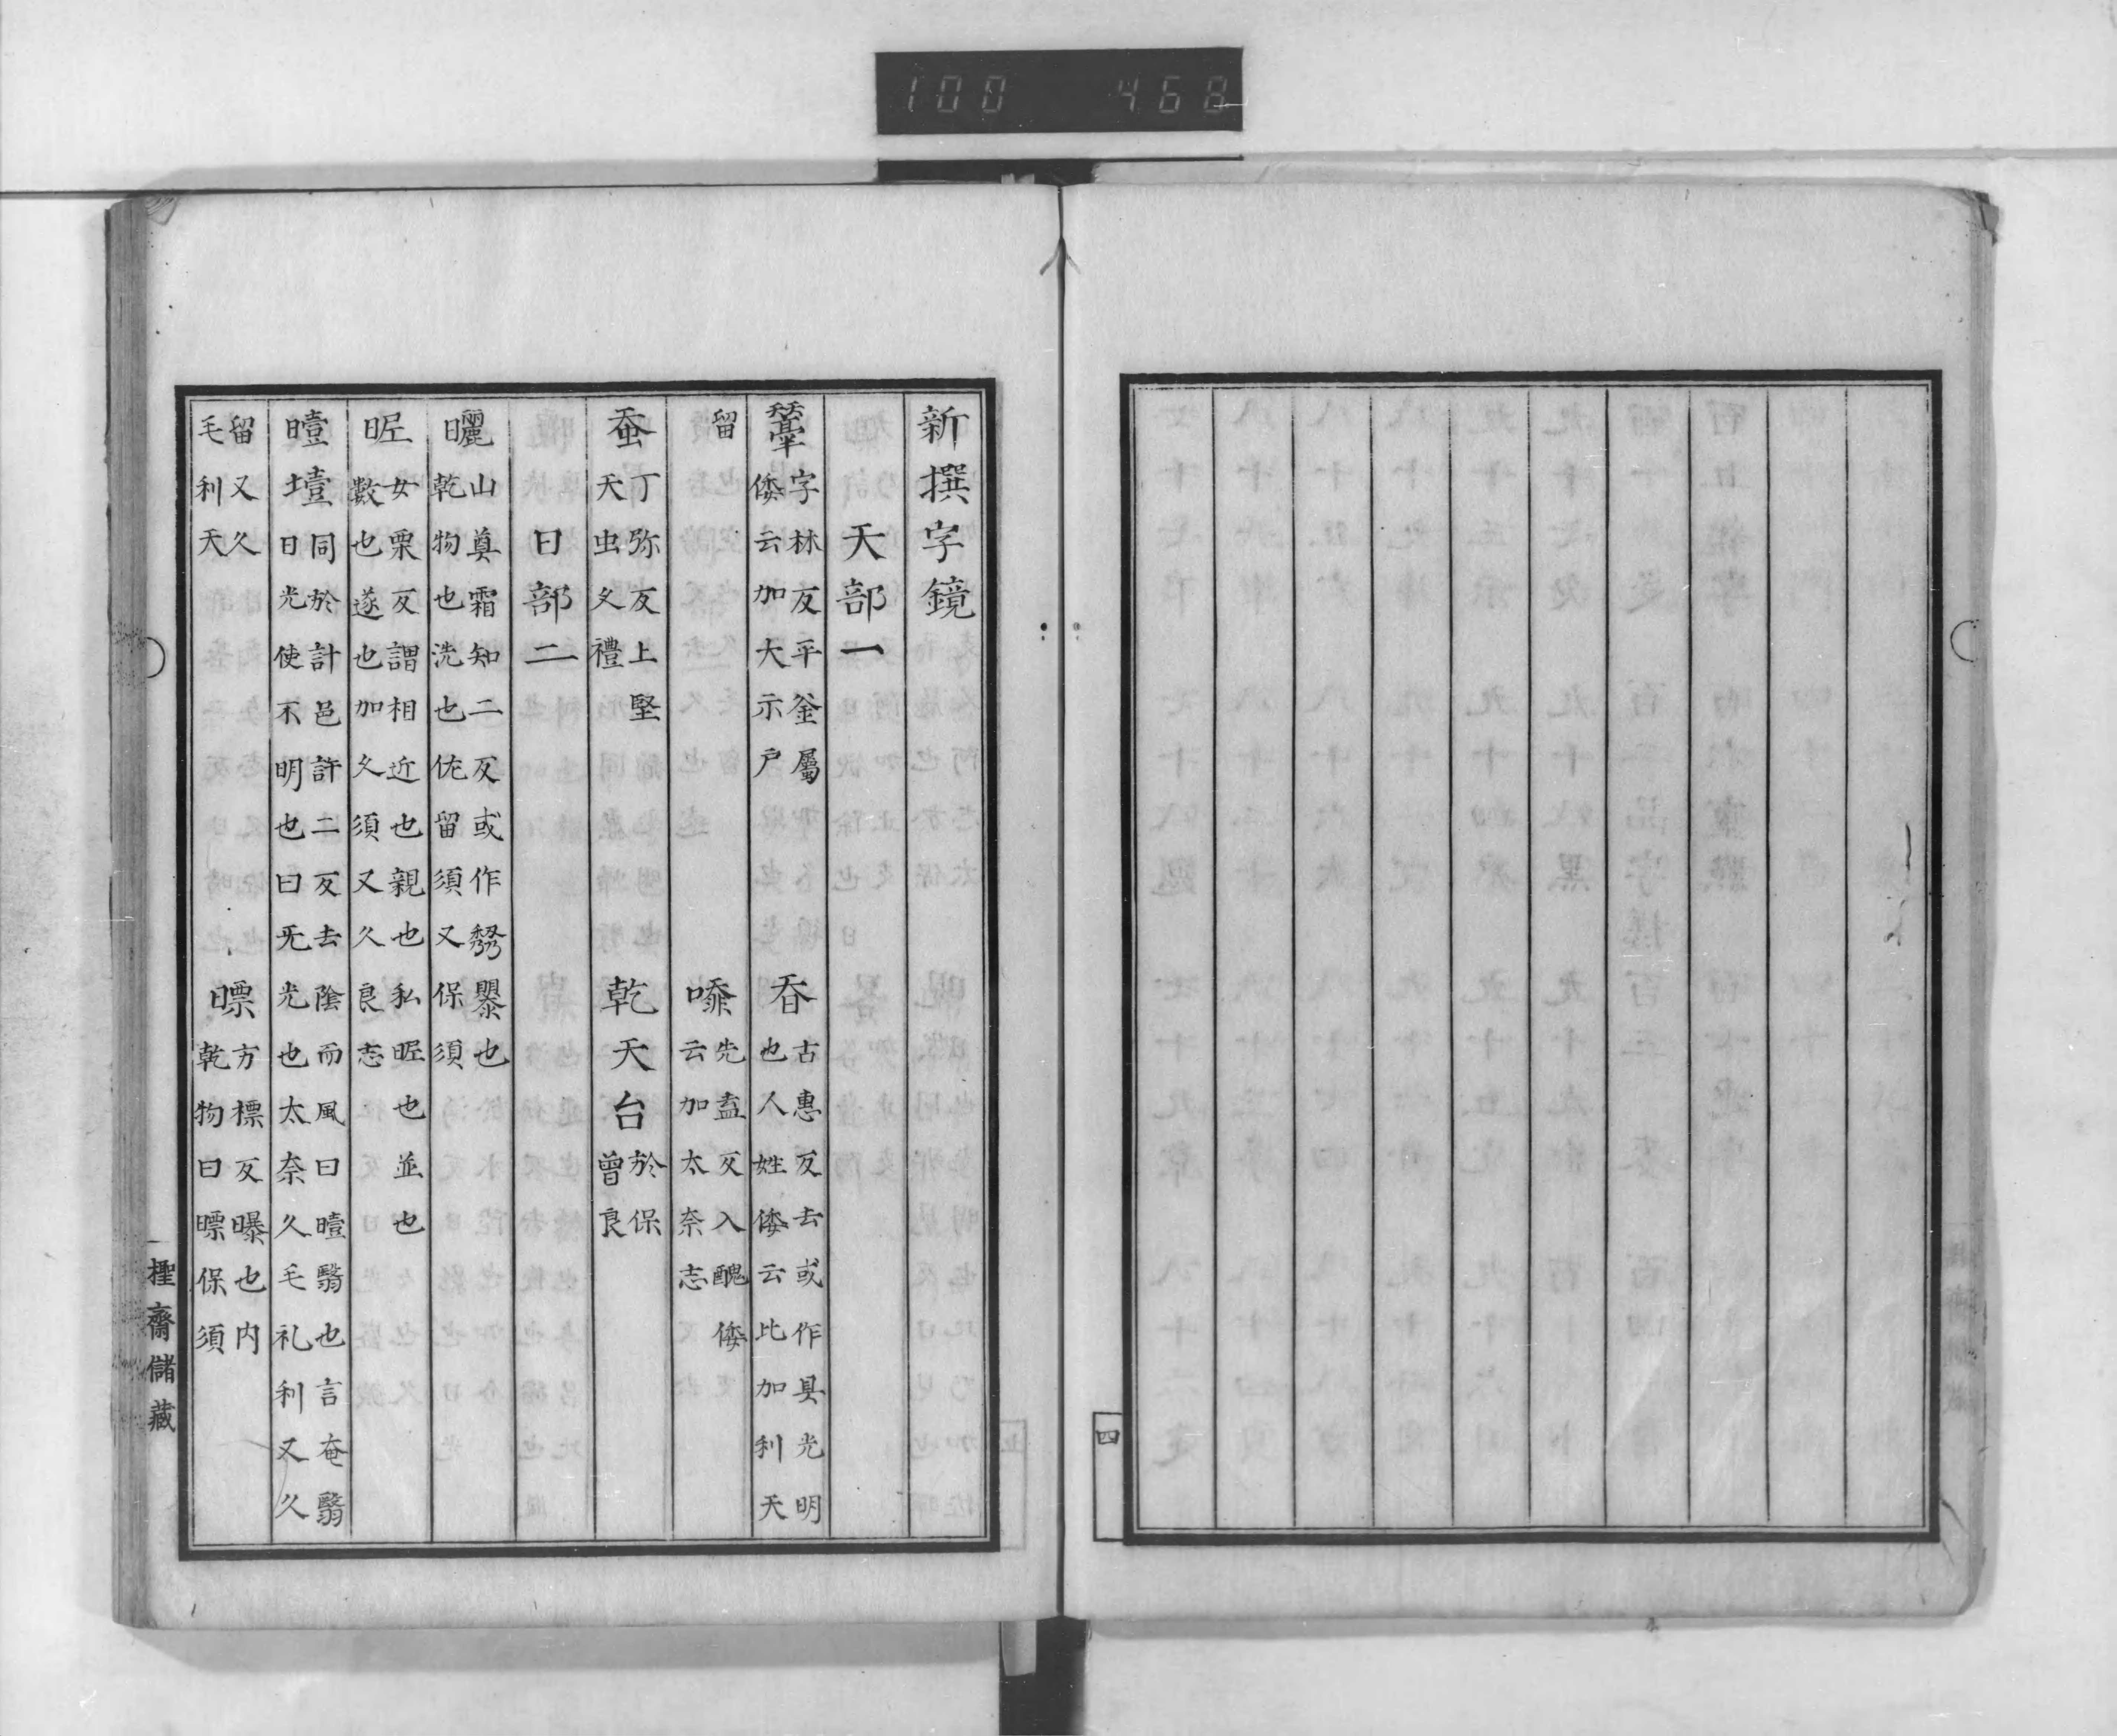 100 468
四
新撰字鏡
天部一
字林反平釜屬
倭云加大示戶
昋
古惠反去或作炅光明
也人姓倭云比加利天
留
先盍反入醜倭
云加太奈志
蚕
丁弥反上堅
天虫久禮
乾 天台
於保
曽良
日部二
曬
山真霜知二反或作曓也
乾物也洗也佐留須又保須
昵
女栗反謂相近也親也私昵也並也
數也遂也加久須又久良志
曀 㙪
同於計邑許二反去陰而風曰曀翳也言奄翳
日光使不明也曰旡光也太奈久毛礼利又久
留又久
毛利天
㬓
方標反曝也内
乾物曰㬓保須
棭齋儲藏